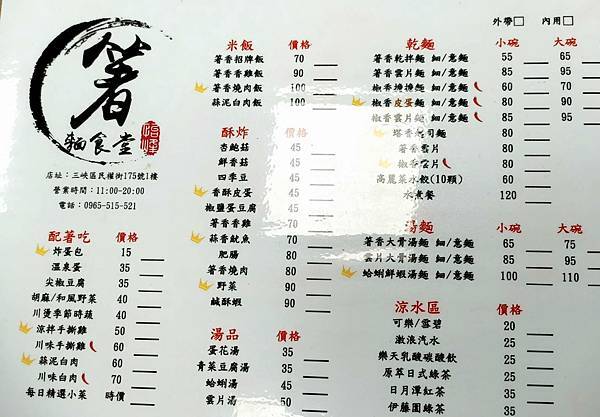 外帶 內用
箸
麵食堂
店址：三峽區民權街175號1樓
營業時間：11:00-20:00
電話：0965-515-521
配箸吃 價格
炸蛋包 15
溫泉蛋 35
尖椒豆腐 35
胡麻/和風野菜 40
川燙季節時蔬 40
涼拌手撕雞 50
川味手撕雞 60
蒜泥白肉 60
川味白肉 70
每日精選小菜 時價
米飯 價格
箸香招牌飯 70
箸香香雞飯 90
箸香燒肉飯 100
蒜泥白肉飯 100
酥炸 價格
杏鮑菇 45
鮮香菇 45
四季豆 45
香酥皮蛋 45
椒鹽蛋豆腐 45
箸香香雞 70
蒜香魷魚 70
肥腸 80
箸香燒肉 80
野菜 90
鹹酥蝦 90
湯品 價格
蛋花湯 35
青菜豆腐湯 35
蛤蜊湯 45
雲片湯 50
乾麵 小碗 大碗
箸香乾拌麵 細/意麵 55 65
箸香雲片麵 細/意麵 85 95
椒香燒燒麵 細/意麵 60 70
椒香皮蛋麵 細/意麵 80 90
椒香雲片麵 細/意麵 85 95
塔香 司麵 80
箸香雲片 80
椒香雲片 80
高麗菜水餃(10顆) 60
水煮餐 120
湯麵 小碗 大碗
箸香大骨湯麵 細/意麵 65 75
雲片大骨湯麵 細/意麵 85 95
蛤蜊鮮蝦湯麵 細/意麵 100 110
涼水區 價格
可樂/雪碧 20
漱浪汽水 25
樂天乳酸碳酸飲 35
原萃日式綠茶 35
日月潭紅茶 35
伊藤園綠茶 35